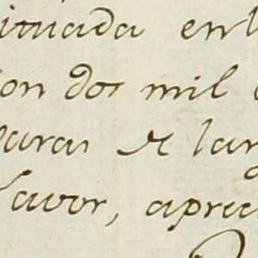 situada en l
on dos mil
varas de lar
Favor, apreci